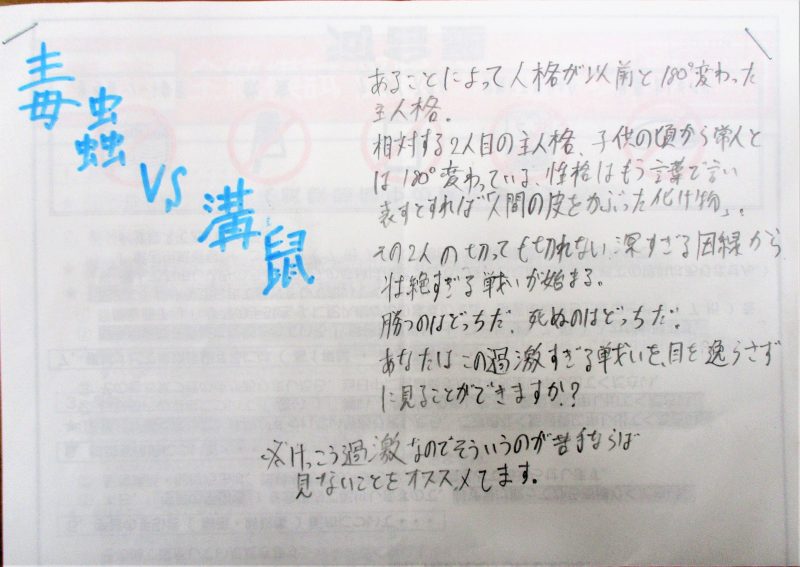 毒蟲
VS
溝鼠
あることによって人格が以前と180°変わった
主人格。
相対する2人目の主人格、子供の頃から常人と
は180°変わっている、性格はもう言葉で言い
表すとすれば「人間の皮をかぶった化け物」。
その2人の切っても切れない深すぎる因縁から
壮絶すぎる戦いが始まる。
勝つのはどっちだ、死ぬのはどっちだ。
あなたはこの過激すぎる戦いを、目を逸らさず
に見ることができますか?
※けっこう過激なのでそういうのが苦手ならば
見ないことをオススメてます。